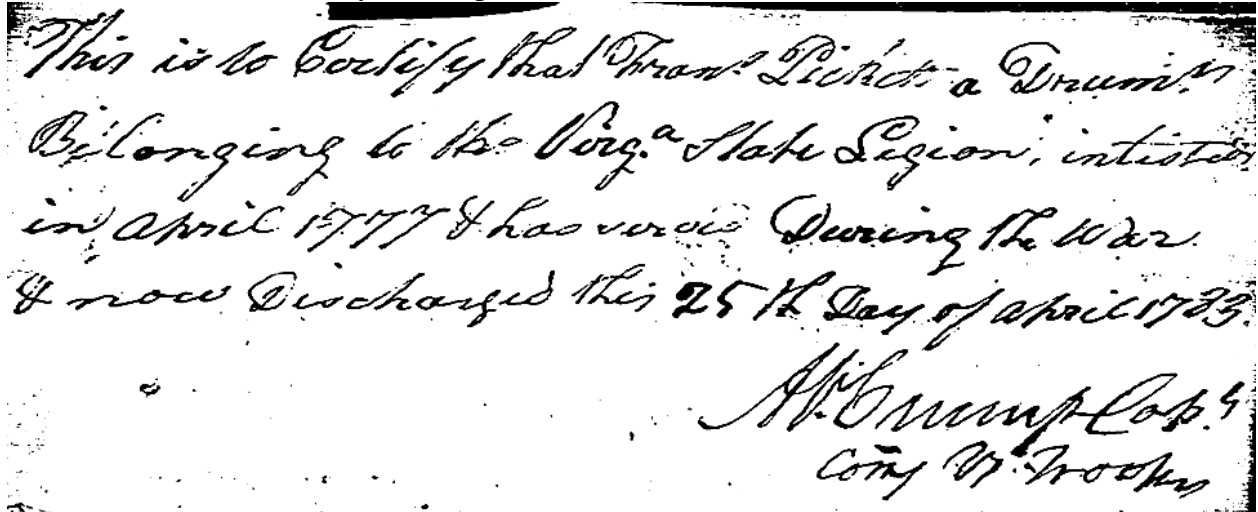 This is to Certify that Fran.s Pickett a Drum.r
Belonging to the Virg.a State Legion, intisted
in april 1777 & has servd During the War
& now Discharged this 25th Day of april 1783.
Ab.m Crump Cap.t
Com̄g V. Troops